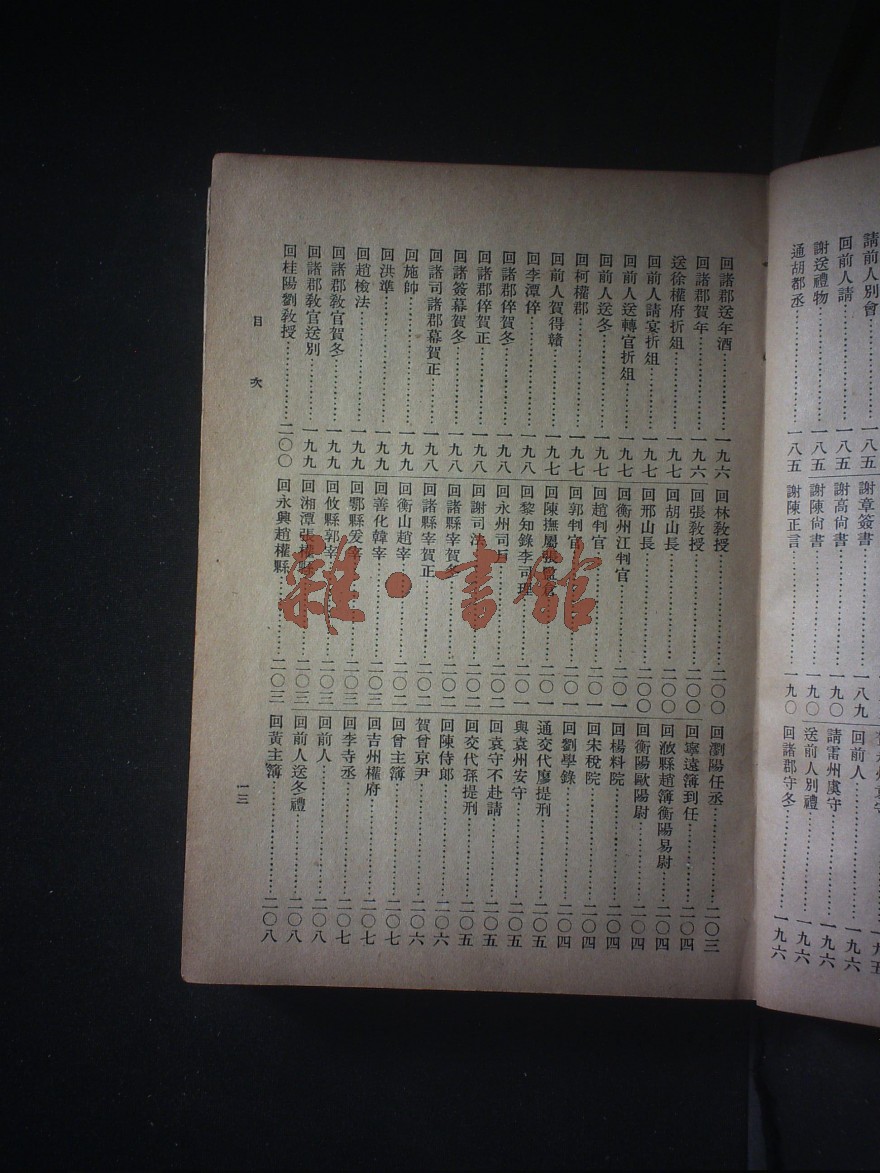 請前人別會……一八五
回前人請……一八五
謝送禮物……一八五
通胡都丞……一八五
謝章簽書……一八九
謝高尚書……一九〇
謝陳尚書……一九〇
謝陳正言……一九〇
回前人……一九六
請雷州虞守……一九六
送前人別禮……一九六
回諸郡守冬……一九六
回諸郡送年酒……一九六
回諸郡賀年……一九六
送徐權府折俎……一九七
回前人請宴折俎……一九七
回前人送轉官折俎……一九七
回前人送冬……一九七
回柯權郡……一九七
回前人賀得贛……一九七
回李潭倅……一九八
回諸郡倅賀冬……一九八
回諸郡倅賀正……一九八
回諸簽幕賀冬……一九八
回諸司諸郡幕賀正……一九八
回施帥……一九九
回洪準……一九九
回趙檢法……一九九
回諸郡教官賀冬……一九九
回諸郡教官送別……一九九
回桂陽劉教授……二〇〇
回林教授……二〇〇
回張教授……二〇〇
回胡山長……二〇〇
回邢山長……二〇〇
回衡州江判官……二〇一
回趙判官……二〇一
回郭判官……二〇一
回陳撫屬張……二〇一
回黎知錄李司理……二〇一
回永州司戶……二〇二
回謝司法……二〇二
回諸縣宰賀冬……二〇二
回諸縣宰賀正……二〇二
回衡山趙宰……二〇二
回善化韓宰……二〇三
回鄂縣爰宰……二〇三
回攸縣郭宰……二〇三
回湘潭張權縣……二〇三
回永興趙權縣……二〇三
回瀏陽任丞……二〇三
回寧遠簿到任……二〇四
回攸縣趙簿衡陽易尉……二〇四
回衡陽歐陽尉……二〇四
回楊料院……二〇四
回宋稅院……二〇四
回劉學錄……二〇四
通交代廖提刑……二〇五
與袁州安守……二〇五
回袁守不赴請……二〇五
回交代孫提刑……二〇五
回陳侍郎……二〇六
賀曾京尹……二〇六
回曾主簿……二〇七
回吉州權府……二〇七
回李寺丞……二〇七
回前人……二〇八
回前人送冬禮……二〇八
回黃主簿……二〇八
目次
一三
雜·書館